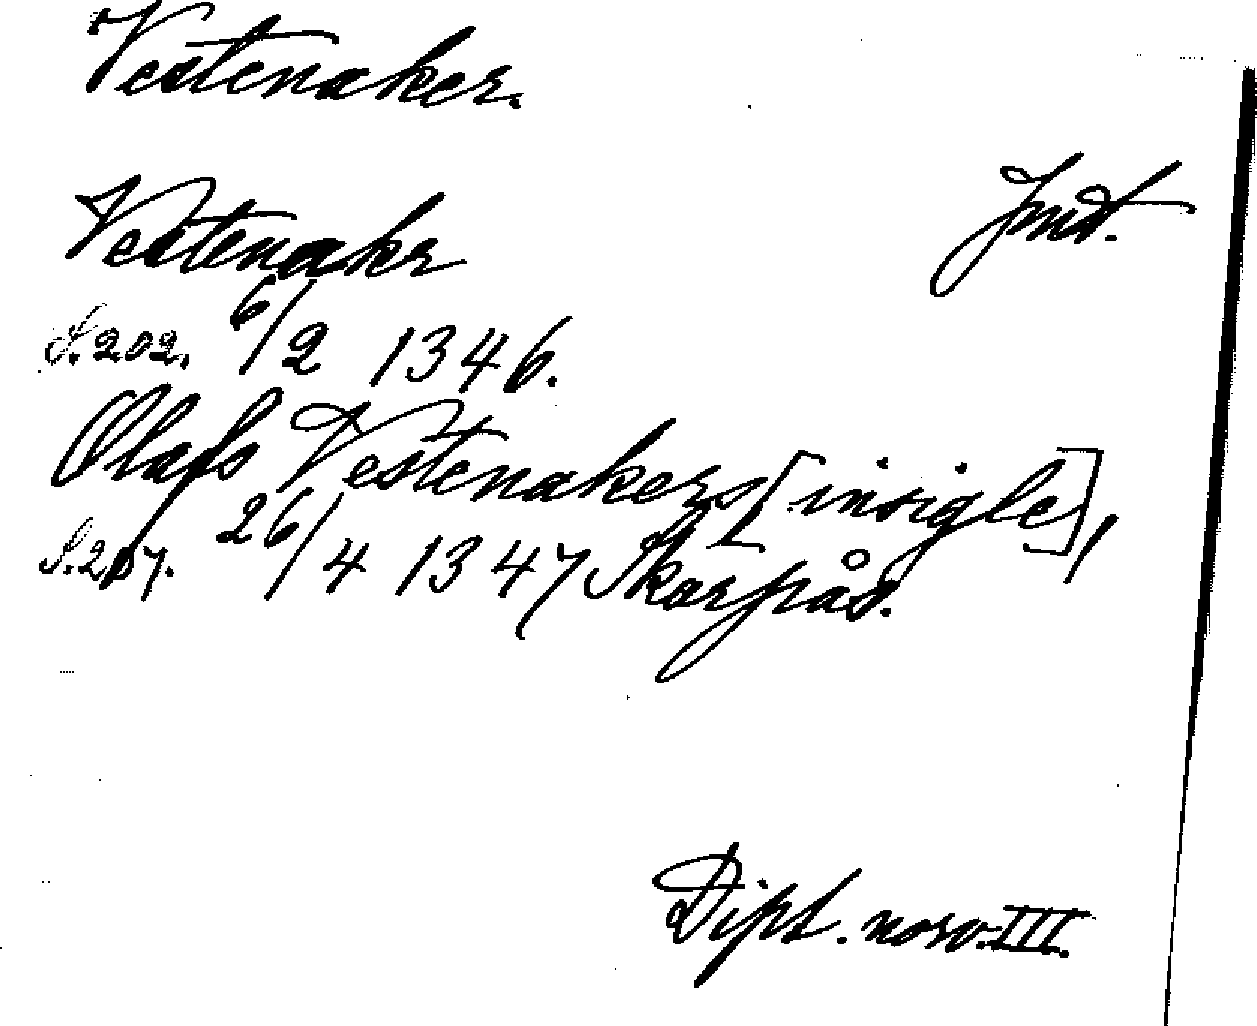 Vestenaker.
Vestenakr
Jmt.
S. 202. 6/2 1346.
Olafs Vestenakers [insigle],
S. 207. 26/4 1347 Skarpås.
Dipl. norv. III.